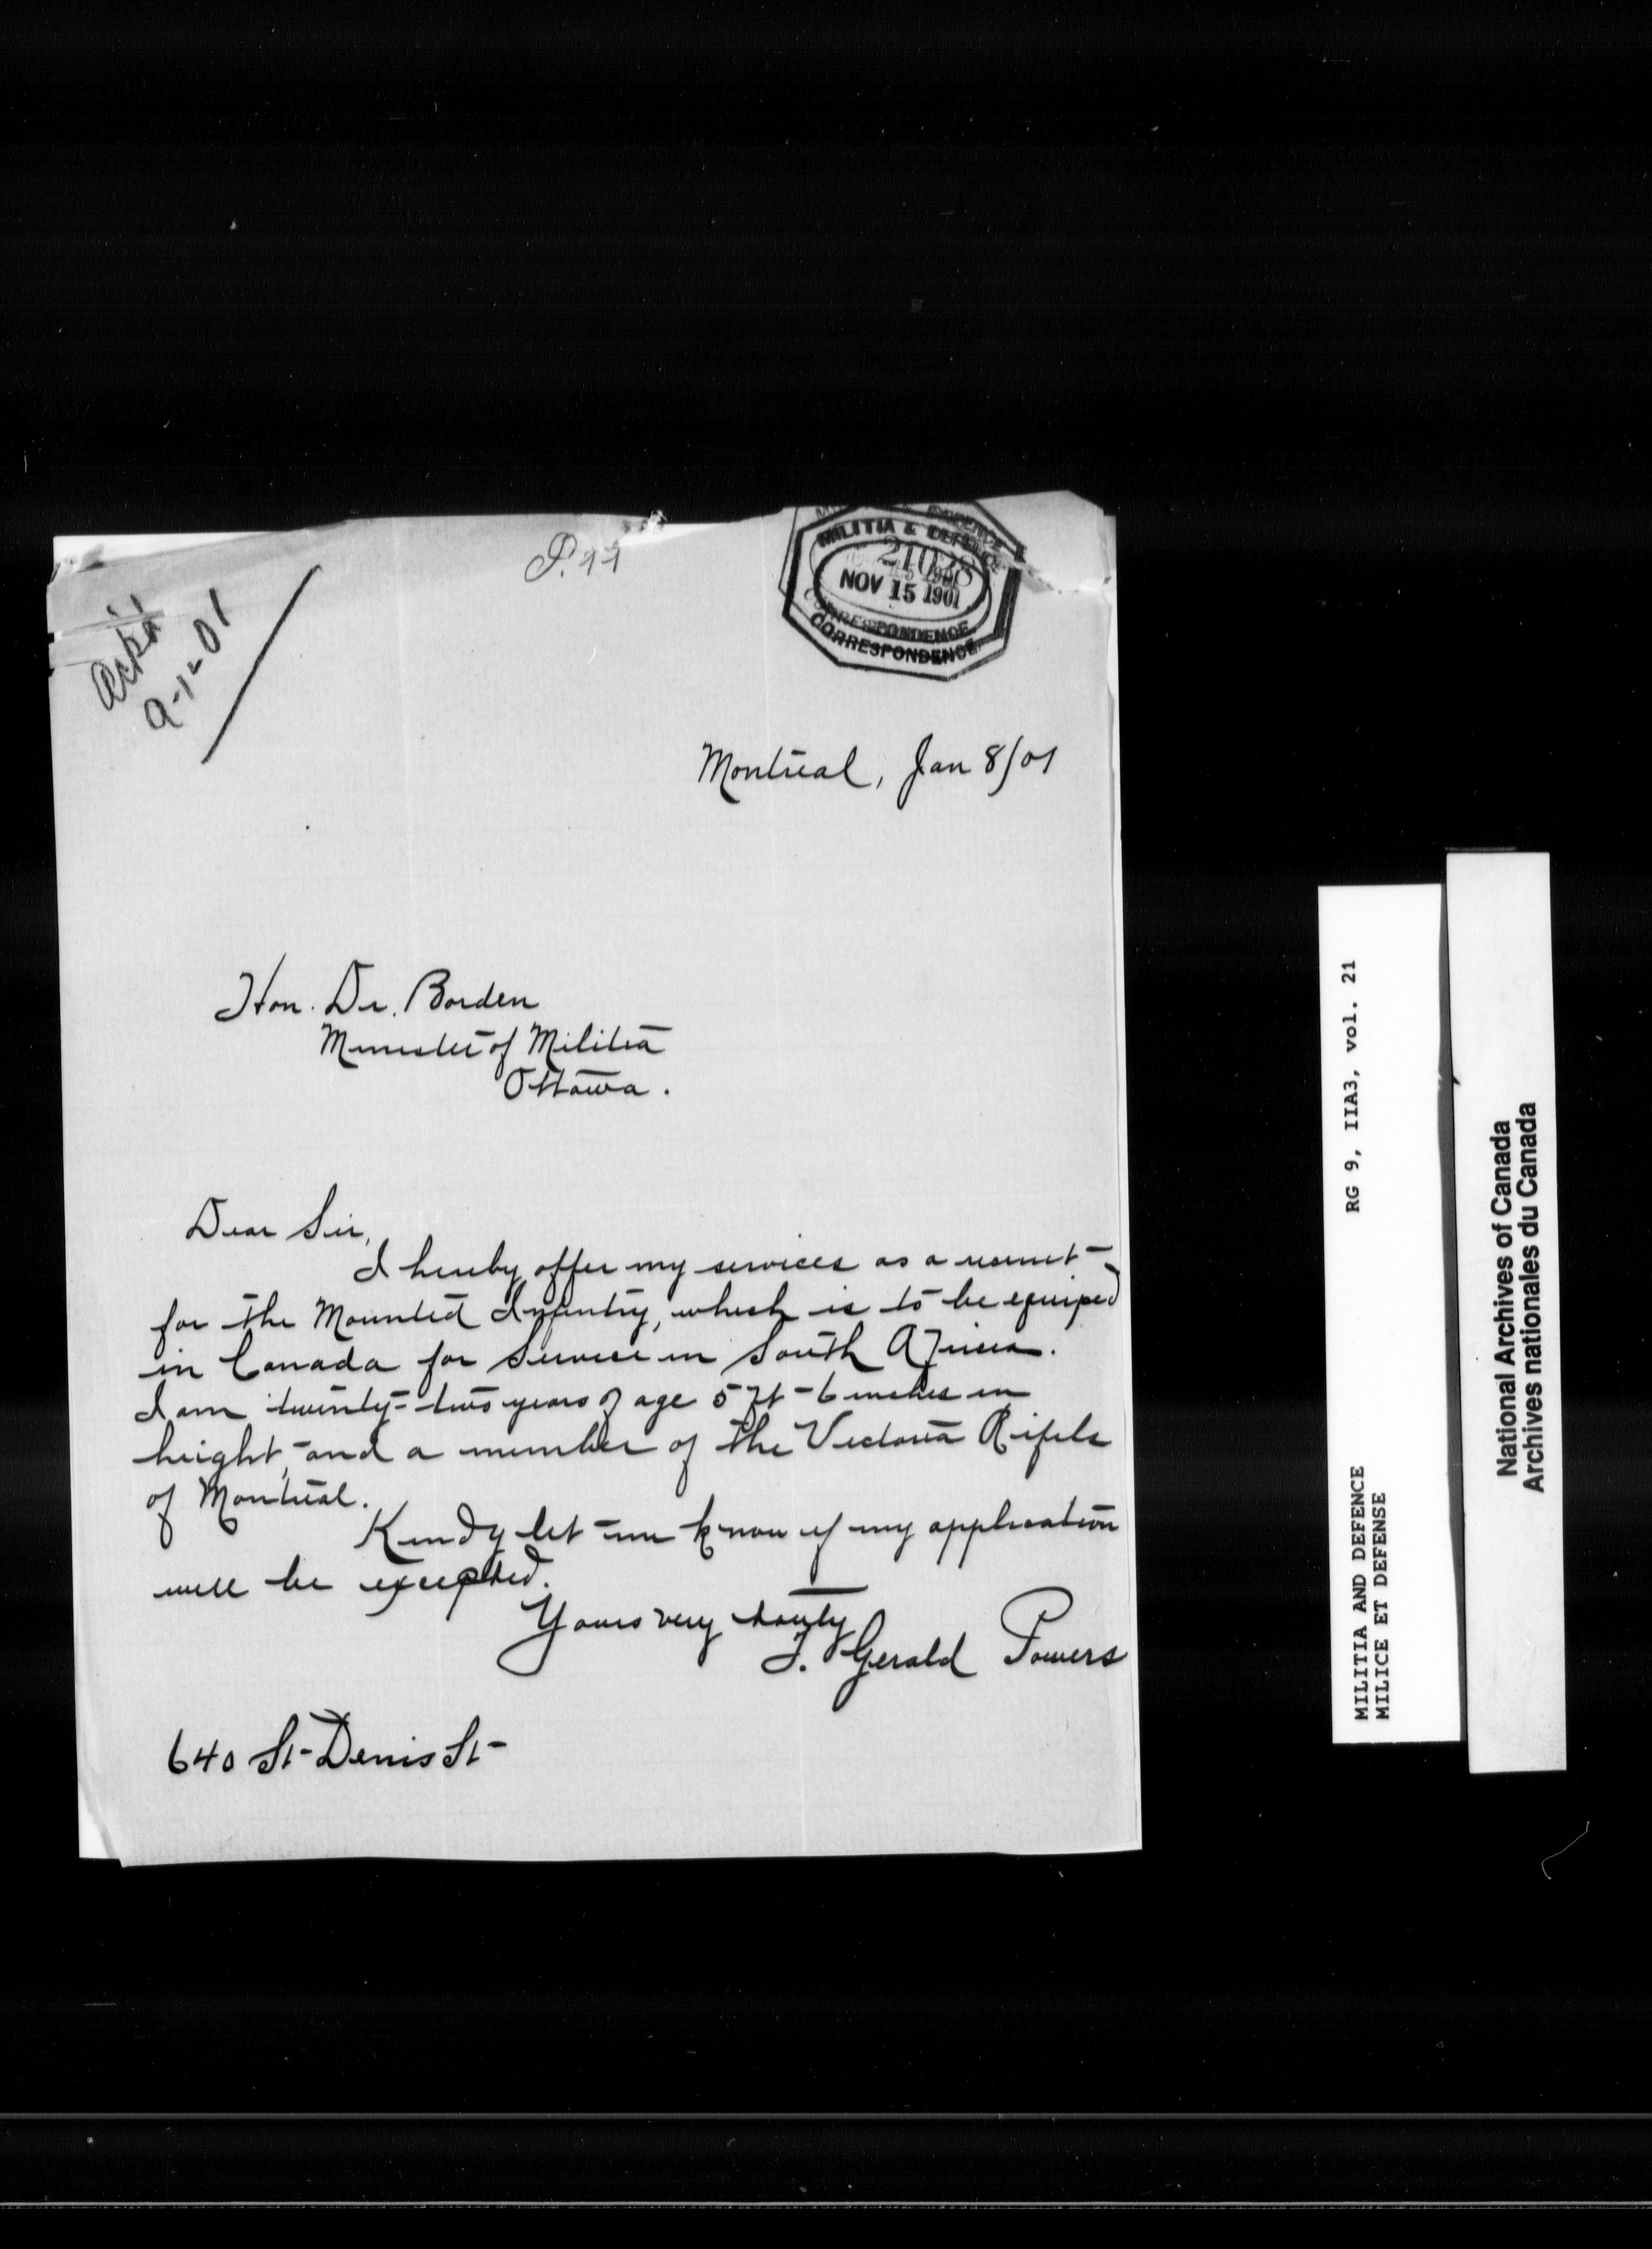 P.77
Ack'd
9-1-01
MILITIA & DEFENCE
21028
NOV 15 1901
CORRESPONDENCE
Montreal, Jan 8/01
Hon. Dr. Borden
Minister of Militia
Ottawa.
Dear Sir,
I hereby offer my services as a recruit
for the Mounted Infantry, which is to be equiped
in Canada for Service in South Africa.
I am twenty-two years of age 5 ft - 6 inches in
height, and a member of the Victoria Rifels
of Montreal.
Kindy let me know if my application
will be excepted.
Yours very truly
J. Gerald Powers
640 St Denis St
RG 9, IIA3, vol. 21
MILITIA AND DEFENCE
MILICE ET DEFENSE
National Archives of Canada
Archives nationales du Canada